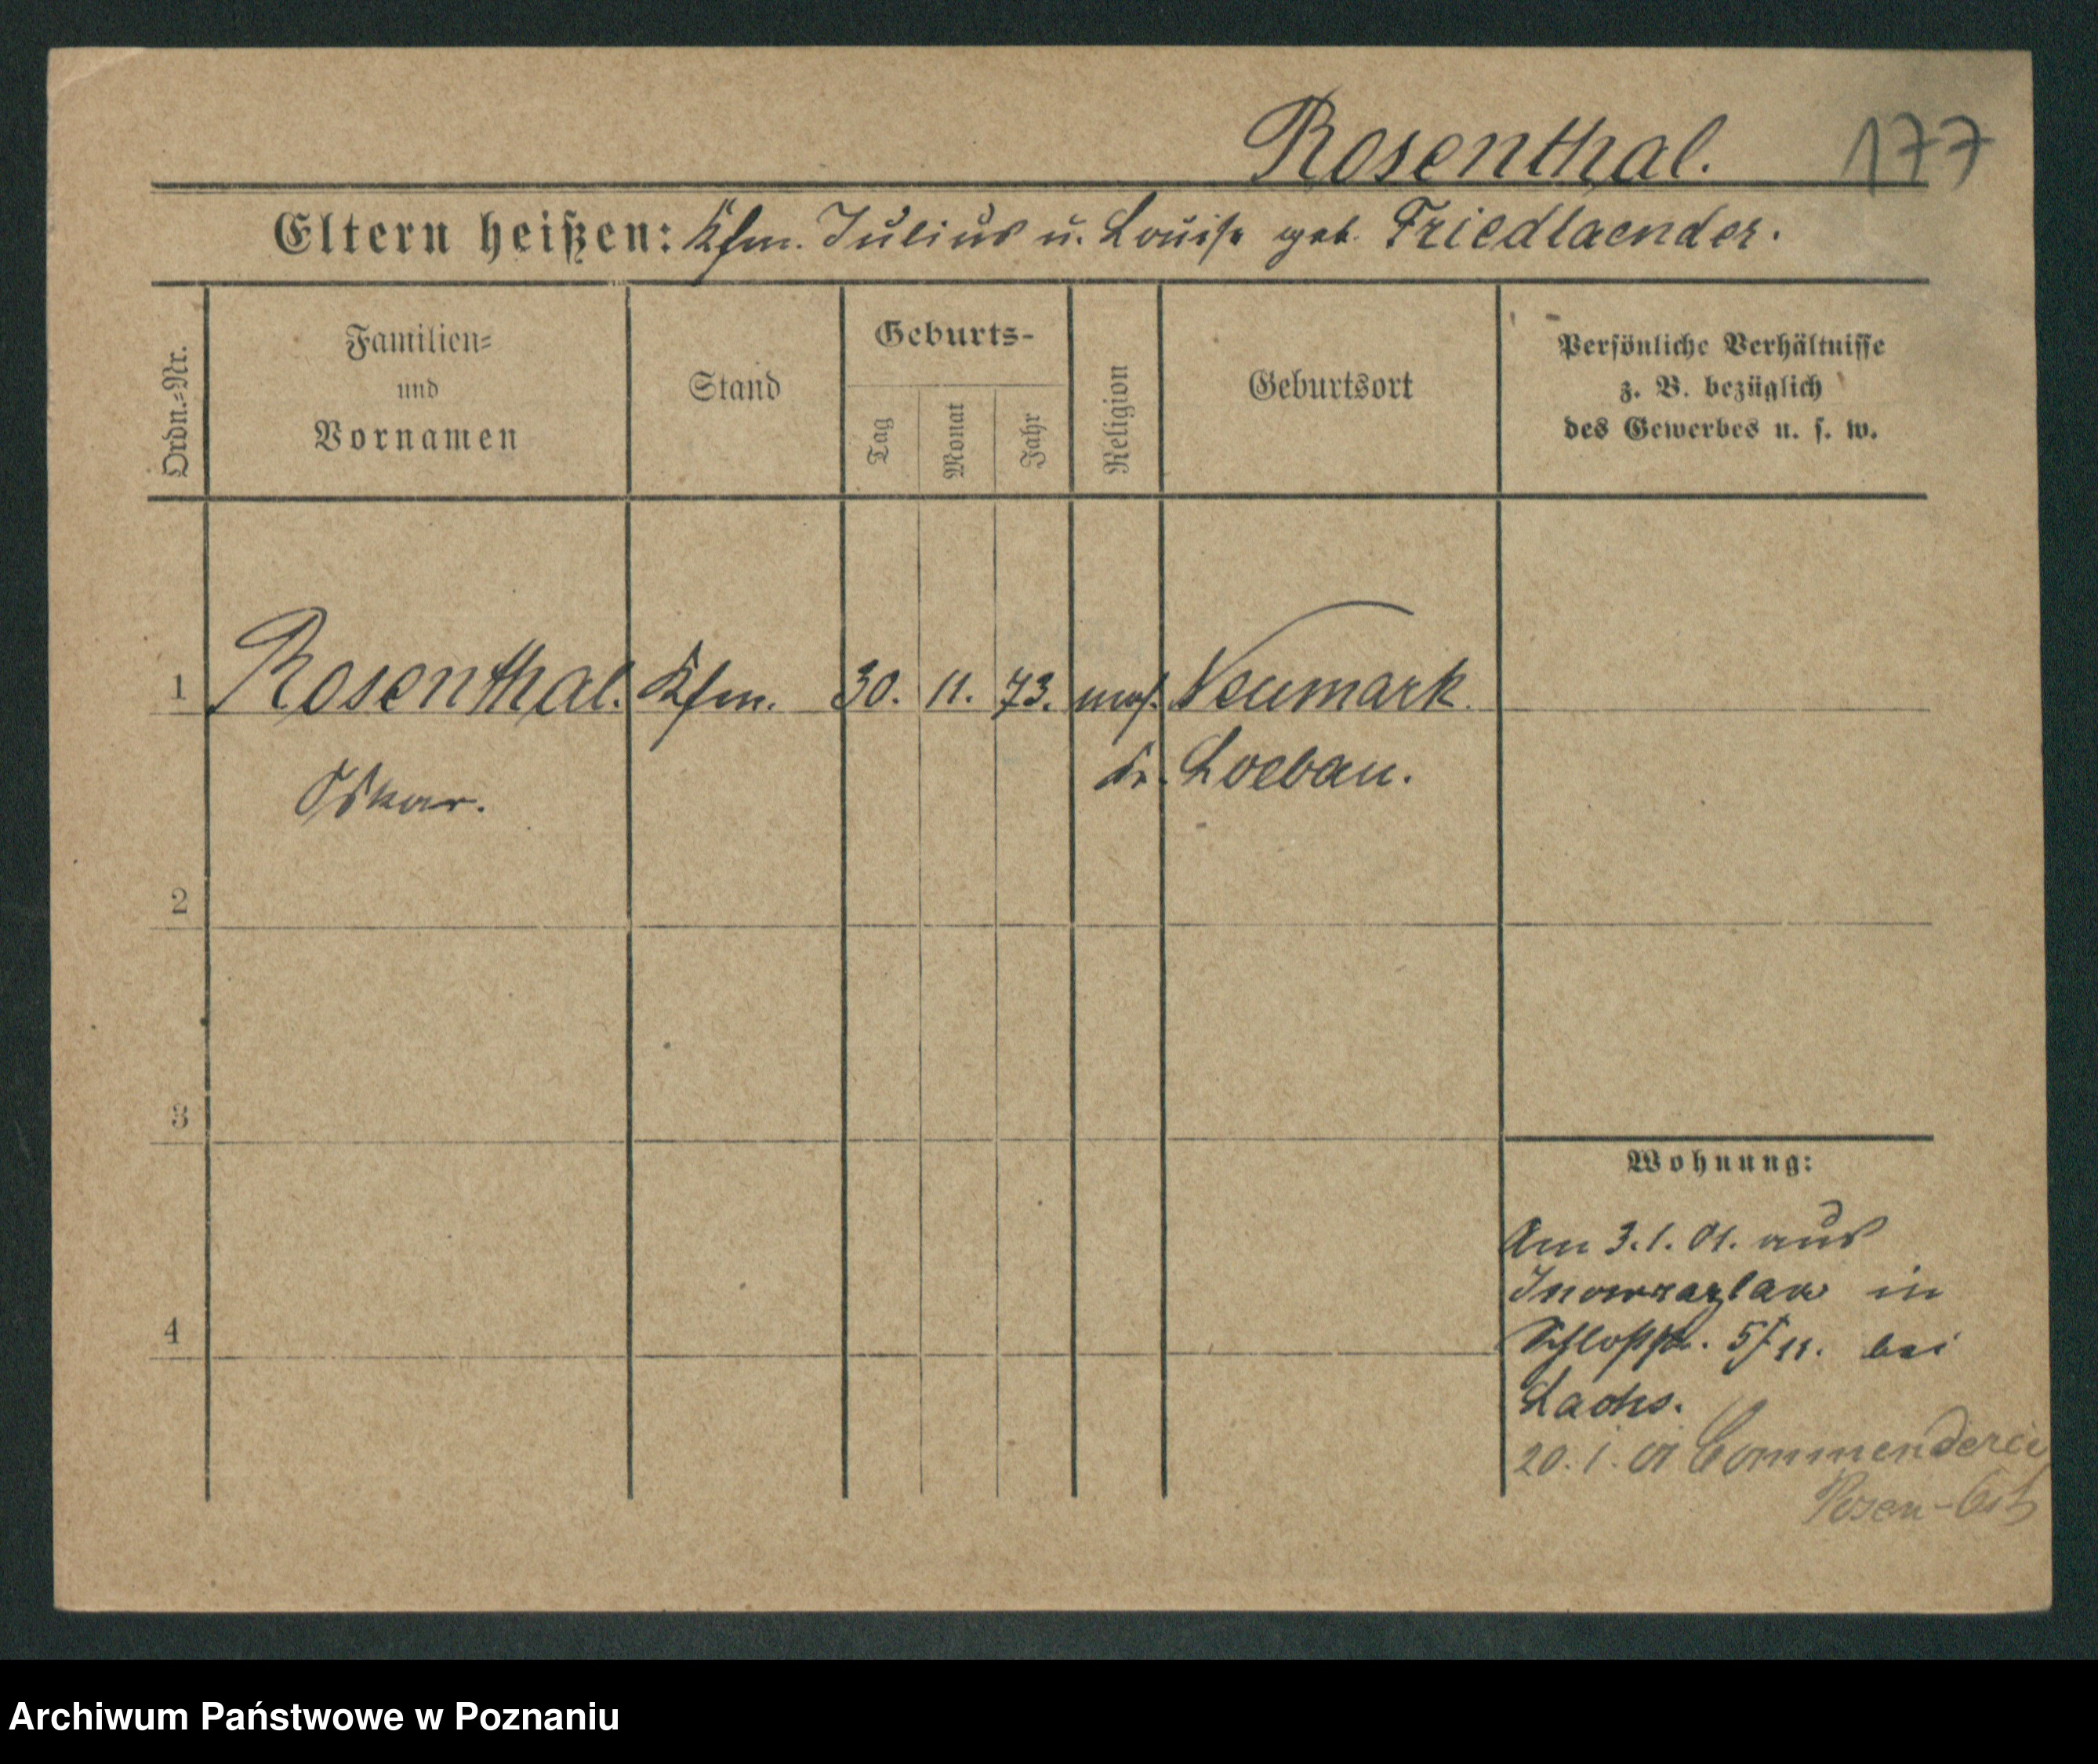 Rosenthal. 177
Eltern heißen: Kfm. Julius u. Louise geb. Friedlaender.
Ordn.-Nr.
Familien-
und
Vornamen
Stand
Geburts-
Tag
Monat
Jahr
Religion
Geburtsort
Persönliche Verhältnisse
z. B. bezüglich
des Gewerbes u. s. w.
1 Rosenthal. Kfm. 30. 11. 73. mos. Neumark
Oskar. Kr. Loebau.
2
3
Wohnung:
Am 3.1.01. aus
Inowrazlaw in
4
Schloßstr. 5 II. bei
Lachs.
20.1.01 Commenderie
Posen-Ost
Archiwum Państwowe w Poznaniu